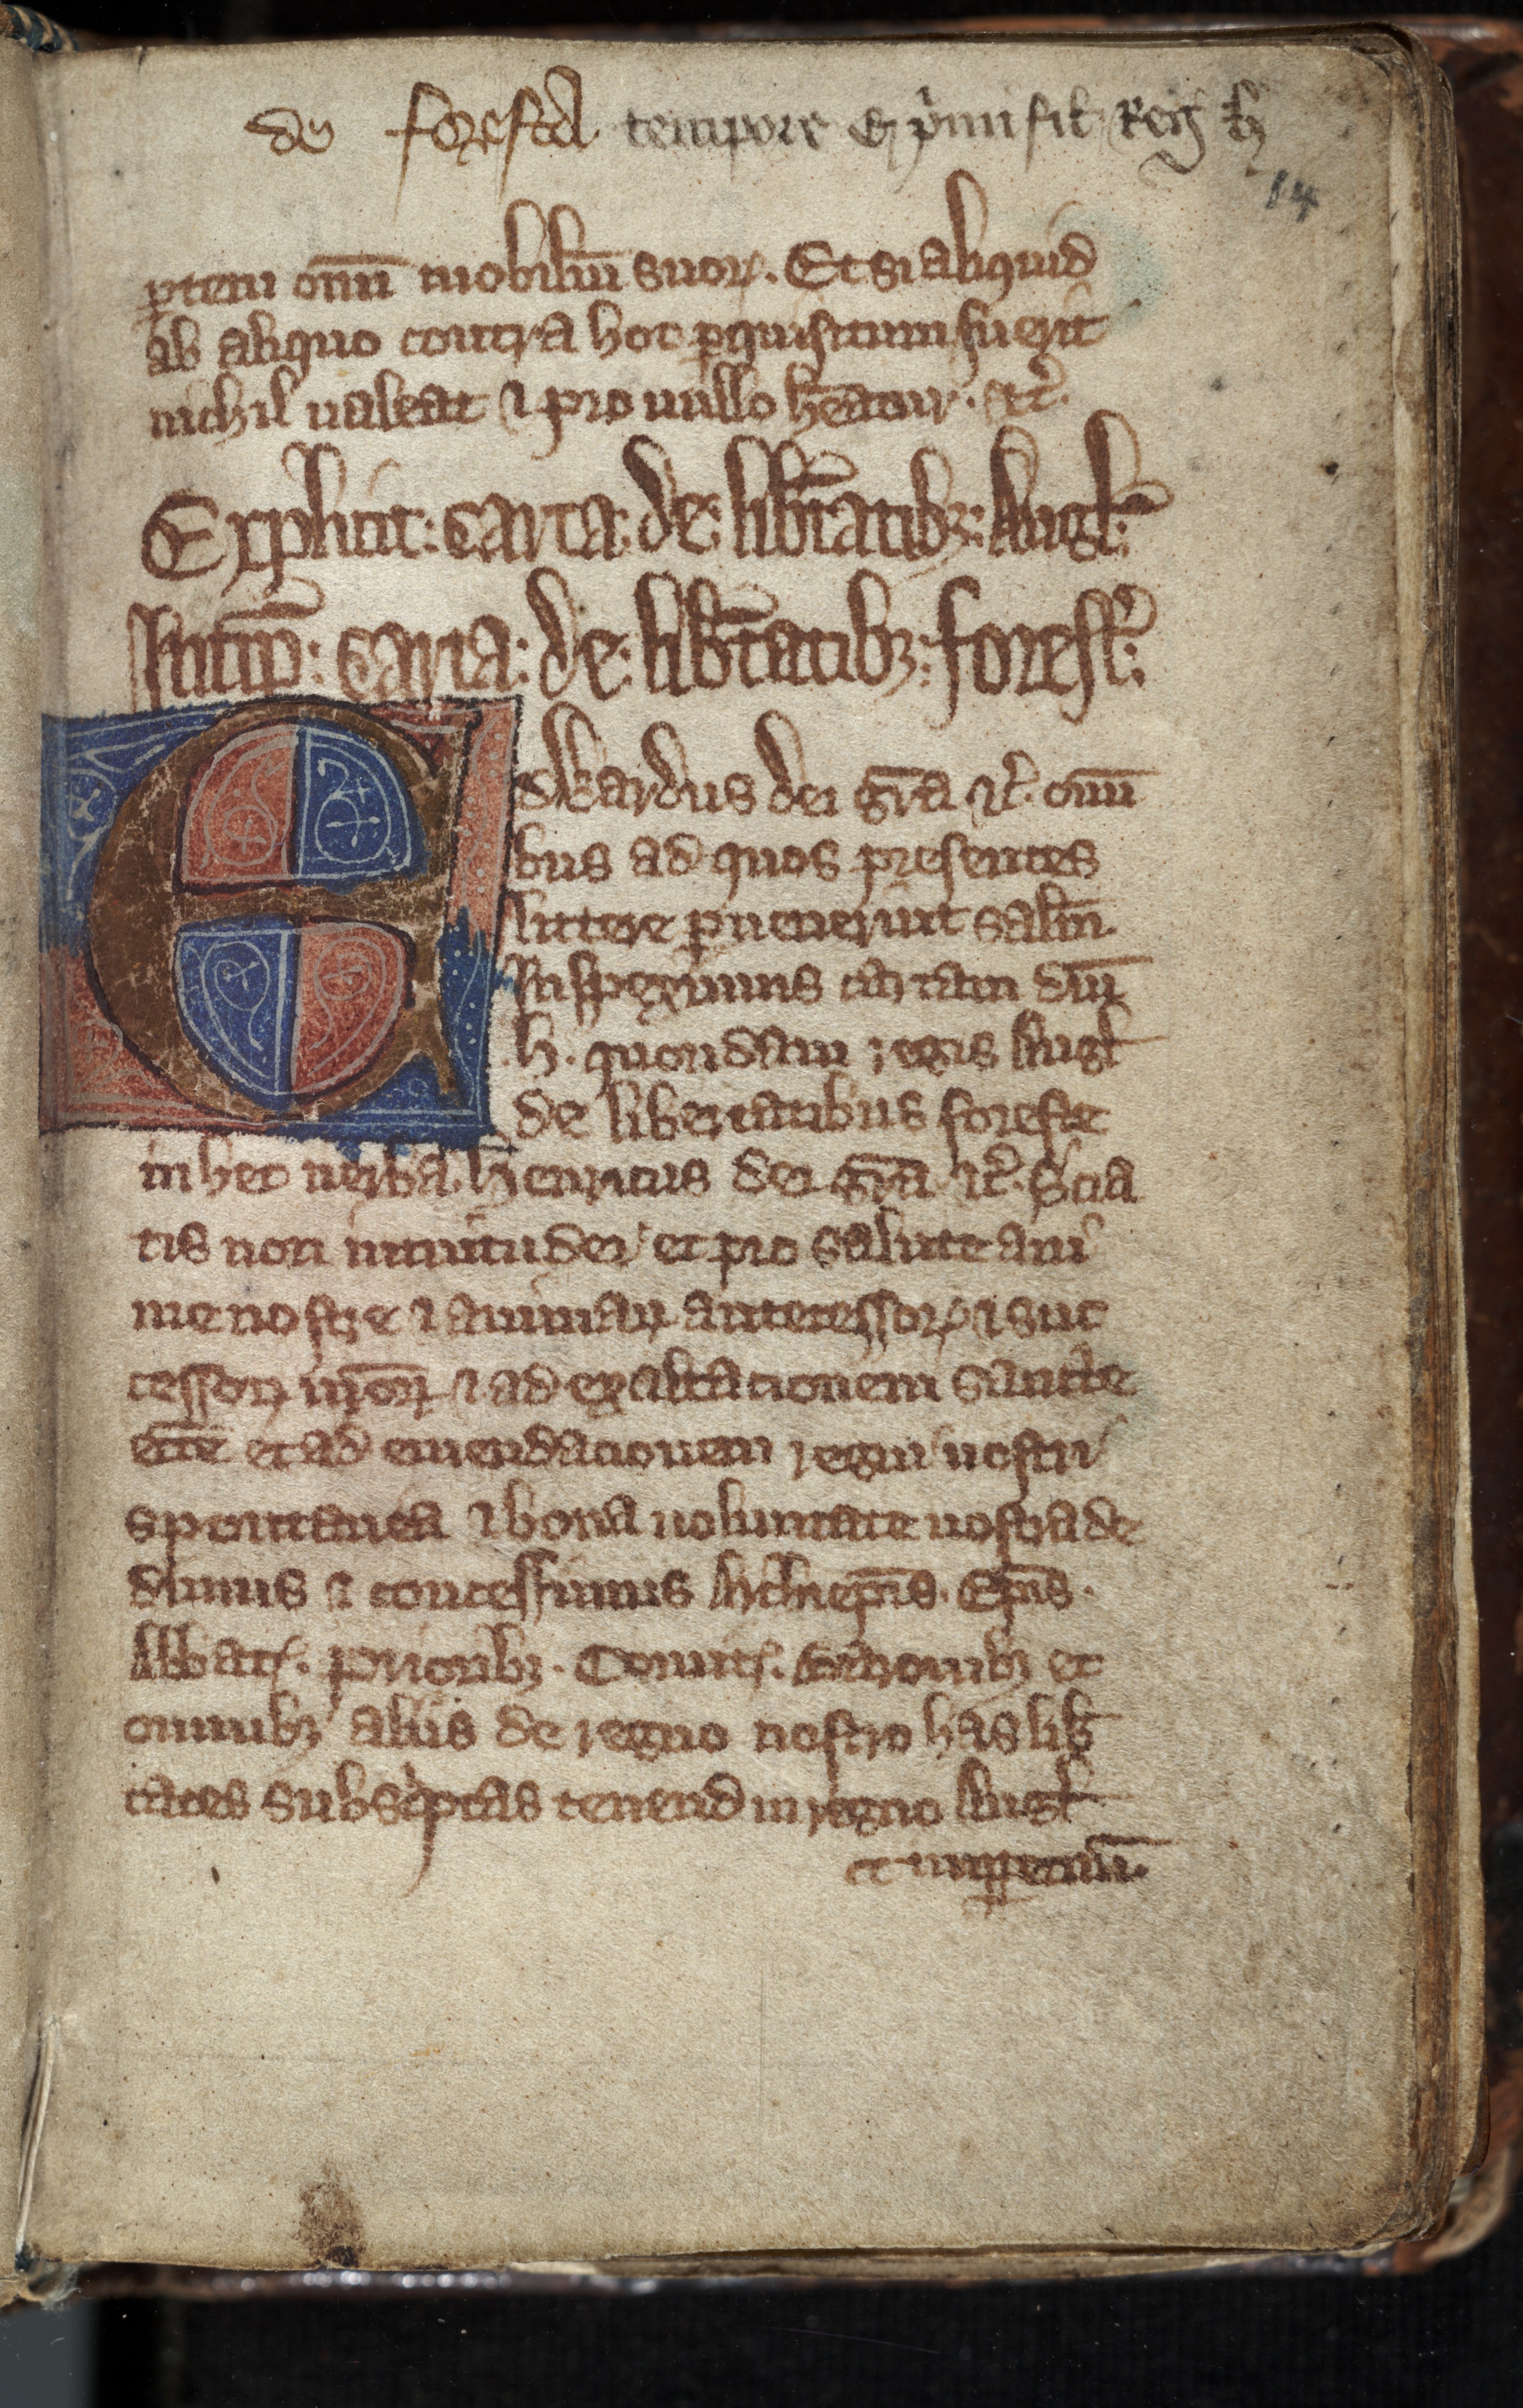 de foresta tempore E p̾mi fil Reg h
14
ꝑtem om̄i mobiliū suoꝝ. Et si aliquid
ab aliquo contra hoc ꝑquisitum fuerit
nichil ualeat ⁊ pro nullo h̄eatur. ⁊c̾.
Explicit: carta: de: lib̾tatibꝫ: Angl̾:
Incip̄: carta: de: lib̾tatibꝫ: forest̾:
Edwardus dei gr̄a ⁊c̾. omī
bus ad quos presentes
littere ꝑuenerint sal̄m
Inspeximus cartam dn̄i
h. quondam regis Angl̾
de libertatibus foreste
in hec uerba. Henricus dei gr̄a ⁊c̾. Scia
tis nos intuitu dei et pro salute ani
me nostre ⁊ animaꝝ antecessoꝝ ⁊ suc
cessoꝝ nr̄oꝝ ⁊ ad exaltacionem sancte
ecc̄e et ad emendacionem regni nostri
spontanea ⁊ bona uoluntate nostra de
dimus ⁊ concessimus Archiep̄is. Ep̄is.
Abbat̾. prioribꝫ. Comit̾. Baronibꝫ et
omnibꝫ aliis de regno nostro has lib̾
tates subsc̾ptas tenend in regno Angl̾
et inꝑpetuū.